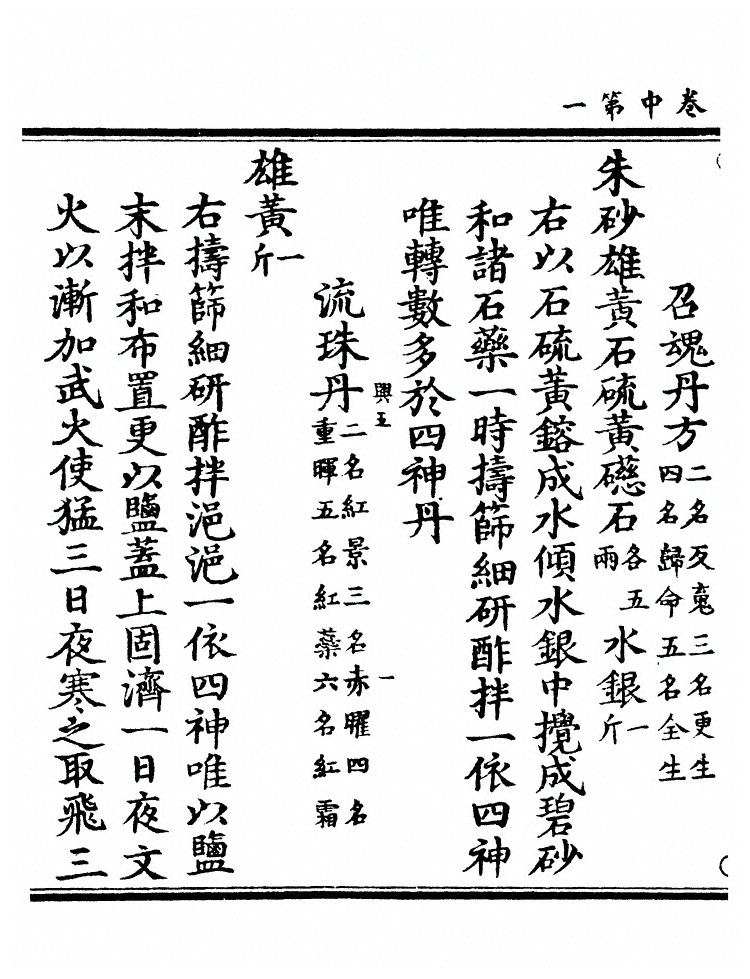 卷中第一
召魂丹方二名反䰟三名更生
四名歸命五名全生
朱砂雄黃石硫黃礠石各五兩水銀一斤
右以石硫黃鎔成水傾水銀中攪成碧砂
和諸石藥一時擣篩細研酢拌一依四神
唯轉數多於四神丹
興五
一
流珠丹二名紅景三名赤曜四名
重暉五名紅蘂六名紅霜
雄黃一斤
右擣篩細研酢拌浥浥一依四神唯以鹽
末拌和布置更以鹽蓋上固濟一日夜文
火以漸加武火使猛三日夜寒之取飛三